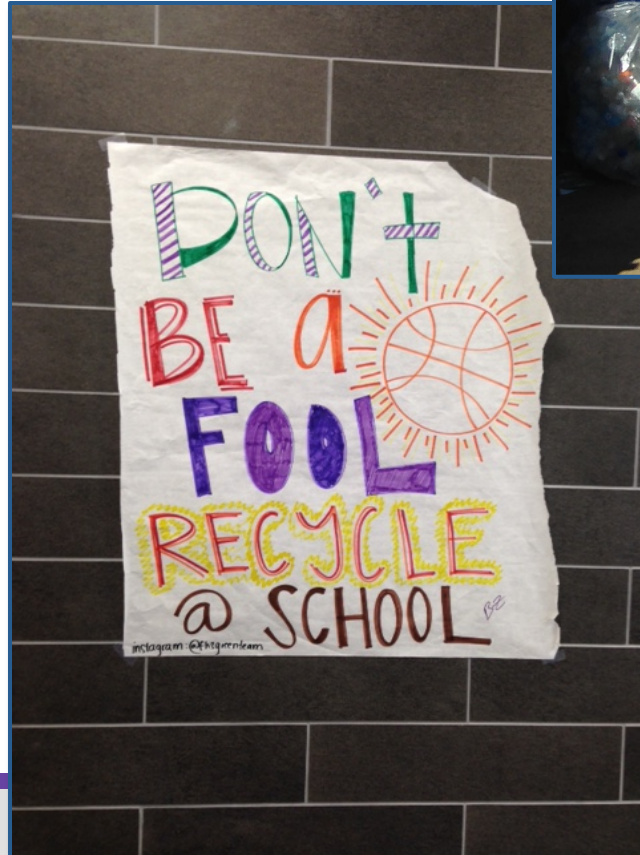 DON't
BE a
FOOL
RECYCLE
@ SCHOOL
BZ
instagram: @fhsgreenteam